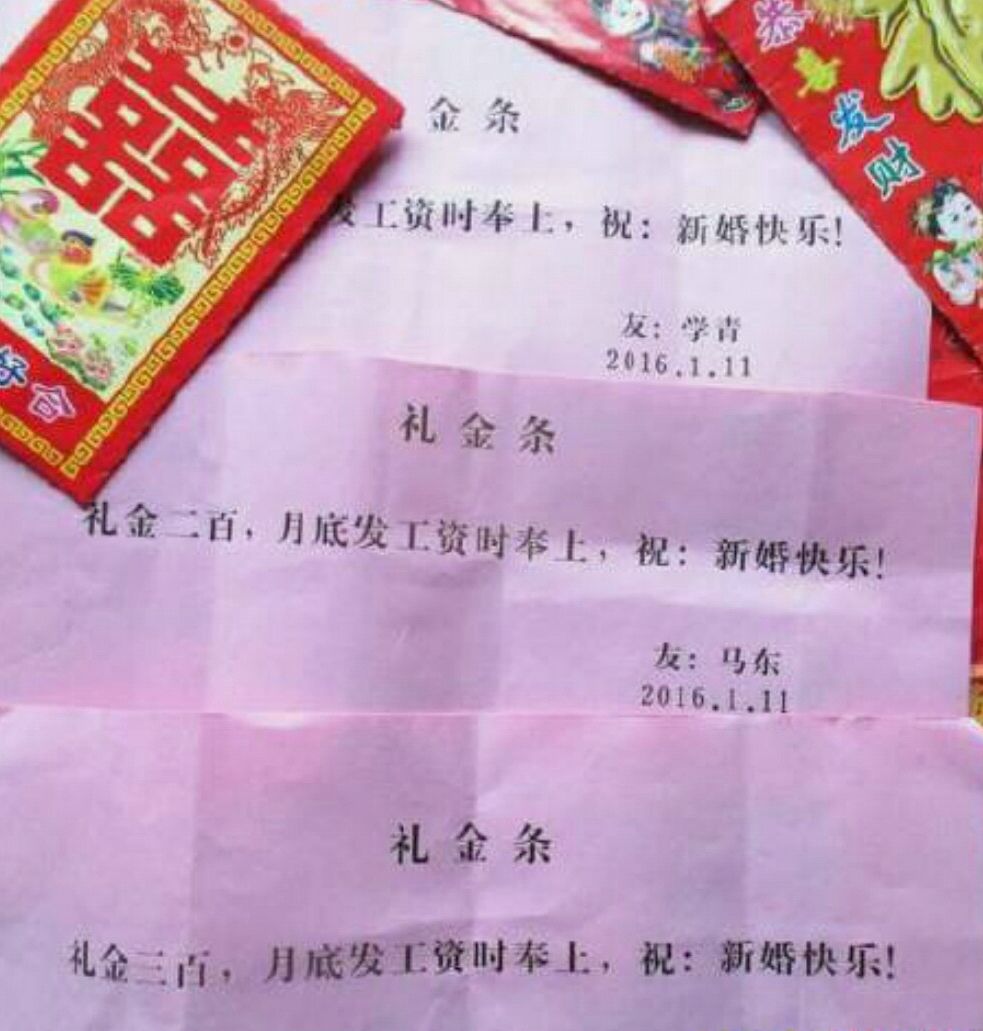 囍
好合
恭
发财
金条
发工资时奉上，祝：新婚快乐！
友：学青
2016.1.11
礼金条
礼金二百，月底发工资时奉上，祝：新婚快乐！
友：马东
2016.1.11
礼金条
礼金三百，月底发工资时奉上，祝：新婚快乐！